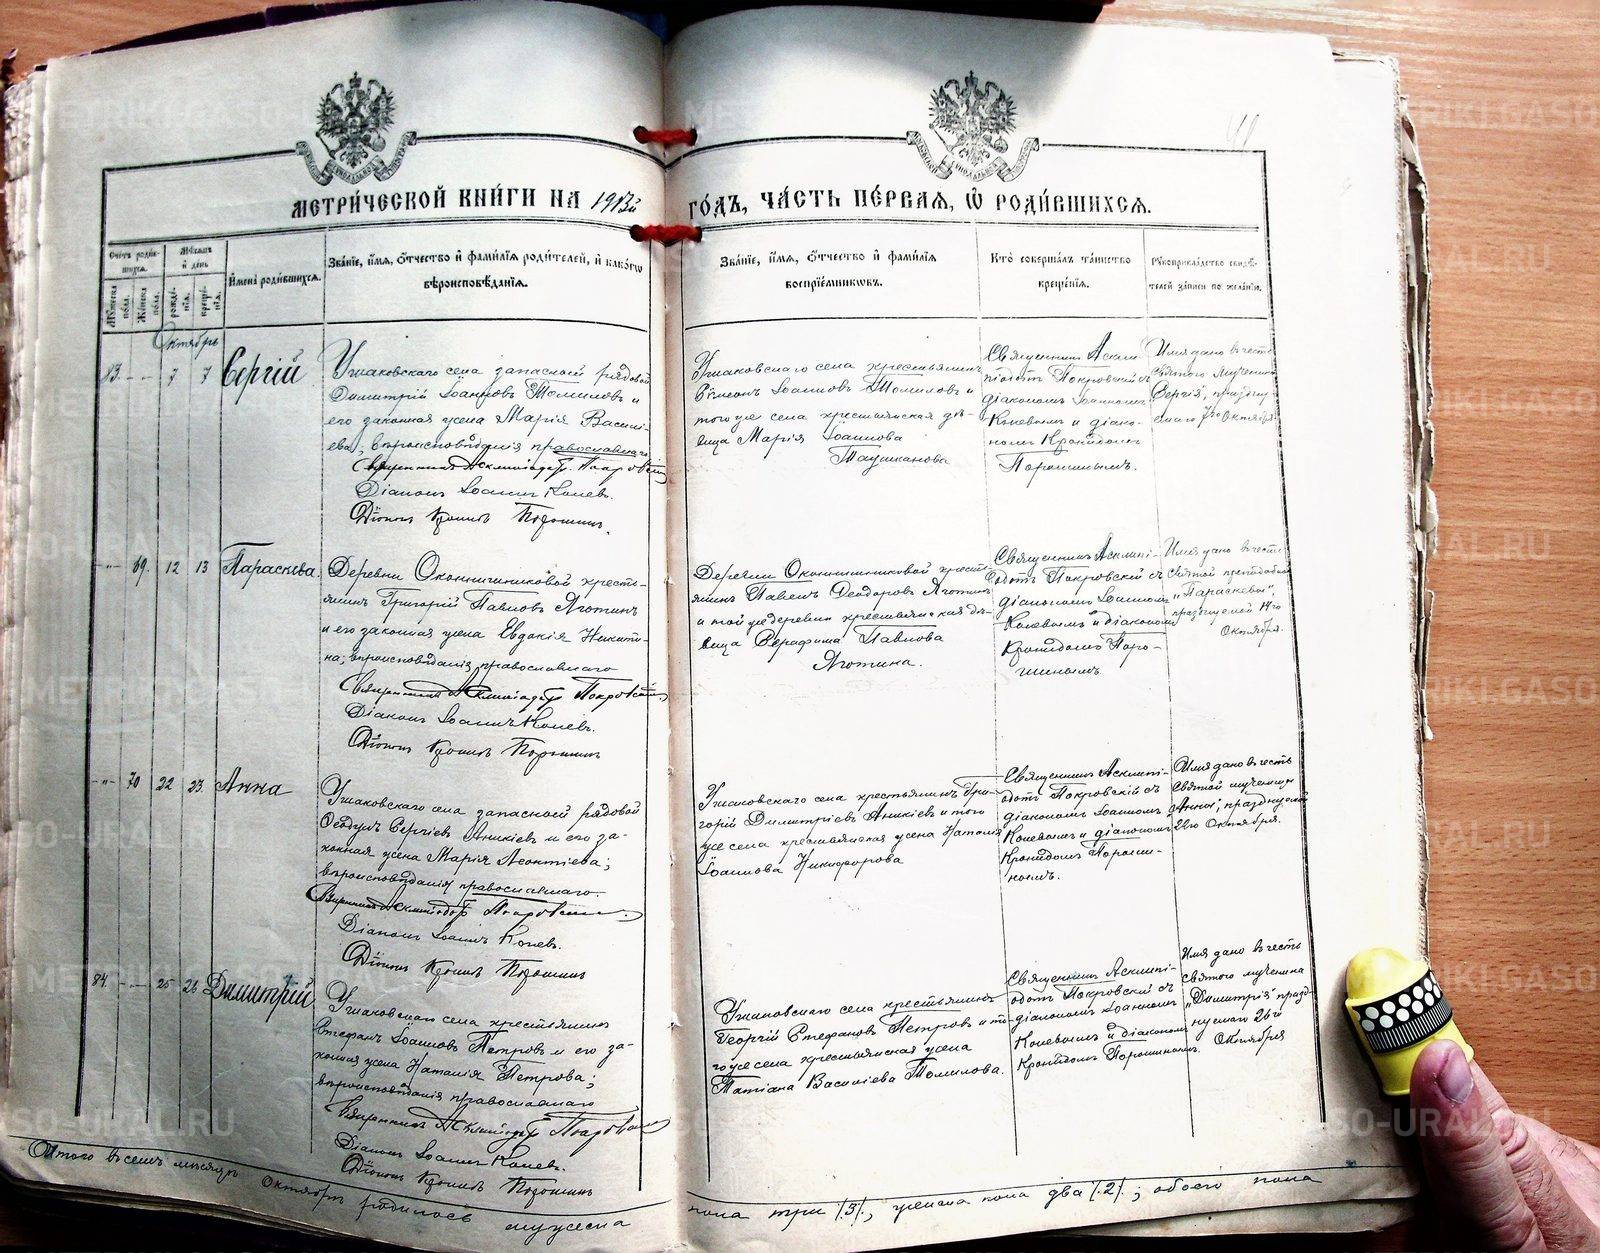 МЕТРИ́ЧЕСКОЙ КНИ́ГИ НА 1913й ГО́ДЪ, ЧА́СТЬ ПЕ́РВАЯ, Ѿ РОДИ́ВШИХСЯ.
Счетъ родив-
шихся.
Мужеска пола.
Женска пола.
Мѣсяцъ и день
рожде-
нія.
креще-
нія.
Имена родившихся.
Званіе, имя, отчество и фамилія родителей, и какого
вѣроисповѣданія.
Званіе, имя, отчество и фамилія
воспріемниковъ.
Кто совершалъ таинство
крещенія.
Рукоприкладство свидѣ-
телей записи по желанію.
Октябрь
7 7 Сергій
Ушаковскаго села запасной рядовой
Димитрій Іоанновъ Томиловъ и
его законная жена Марія Василі-
ева; вѣроисповѣданія православнаго
Священникъ Асклипіодотъ Покровскій
Діаконъ Іоаннъ Коневъ.
Діаконъ Кронидъ Порошинъ
Ушаковскаго села крестьянинъ
Симеонъ Іоанновъ Томиловъ и
того же села крестьянская дѣ-
вица Марія Іоаннова
Таушканова
Священникъ Аскли-
піодотъ Покровскій съ
діакономъ Іоанномъ
Коневымъ и діако-
номъ Кронидомъ
Порошинымъ.
Имя дано въ честь
Святого мученика
Сергія, празднуе-
маго 7го Октября
69. 12 13 Параскева.
Деревни Оконишниковой кресть-
янинъ Григорій Павловъ Яготинъ
и его законная жена Евдокія Никити-
на; вѣроисповѣданія православнаго
Священникъ Асклипіодотъ Покровскій
Діаконъ Іоаннъ Коневъ.
Діаконъ Кронидъ Порошинъ
Деревни Оконишниковой кресть-
янинъ Павелъ Ѳеодоровъ Яготинъ
и той же деревни крестьянская дѣ-
вица Серафима Павлова
Яготина.
Священникъ Асклипі-
одотъ Покровскій съ
діакономъ Іоанномъ
Коневымъ и діакономъ
Кронидомъ Поро-
шинымъ
Имя дано въ честь
Святой преподобной
"Параскевы",
празднуемой 14го
Октября.
70 22 23 Анна
Ушаковскаго села запасной рядовой
Ѳеодулъ Сергіевъ Аникіевъ и его за-
конная жена Марія Леонтіева;
вѣроисповѣданія православнаго.
Священникъ Асклипіодотъ Покровскій
Діаконъ Іоаннъ Коневъ.
Діаконъ Кронидъ Порошинъ
Ушаковскаго села крестьянинъ Гри-
горій Димитріевъ Аникіевъ и того
же села крестьянская жена Наталія
Іоаннова Никифорова
Священникъ Асклипі-
одотъ Покровскій съ
діакономъ Іоанномъ
Коневымъ и діакономъ
Кронидомъ Пороши-
нымъ.
Имя дано въ честь
Святой мученицы
Анны, празднуемой
22го Октября.
84. 25 26 Димитрій
Ушаковскаго села крестьянинъ
Стефанъ Іоанновъ Петровъ и его за-
конная жена Наталія Петрова;
вѣроисповѣданія православнаго
Священникъ Асклипіодотъ Покровскій
Діаконъ Іоаннъ Коневъ.
Діаконъ Кронидъ Порошинъ
Ушаковскаго села крестьянинъ
Георгій Стефановъ Петровъ и то-
го же села крестьянская жена
Татіана Василіева Томилова.
Священникъ Асклипі-
одотъ Покровскій съ
діакономъ Іоанномъ
Коневымъ и діакономъ
Кронидомъ Порошинымъ.
Имя дано въ честь
святого мученика
"Димитрія" празд-
нуемаго 26го
Октября
Итого въ семъ мѣсяцѣ Октябрѣ родилось мужеска пола три /.3/.; женска пола два /.2/.; обоего пола
METRIKI.GASO-URAL.RU